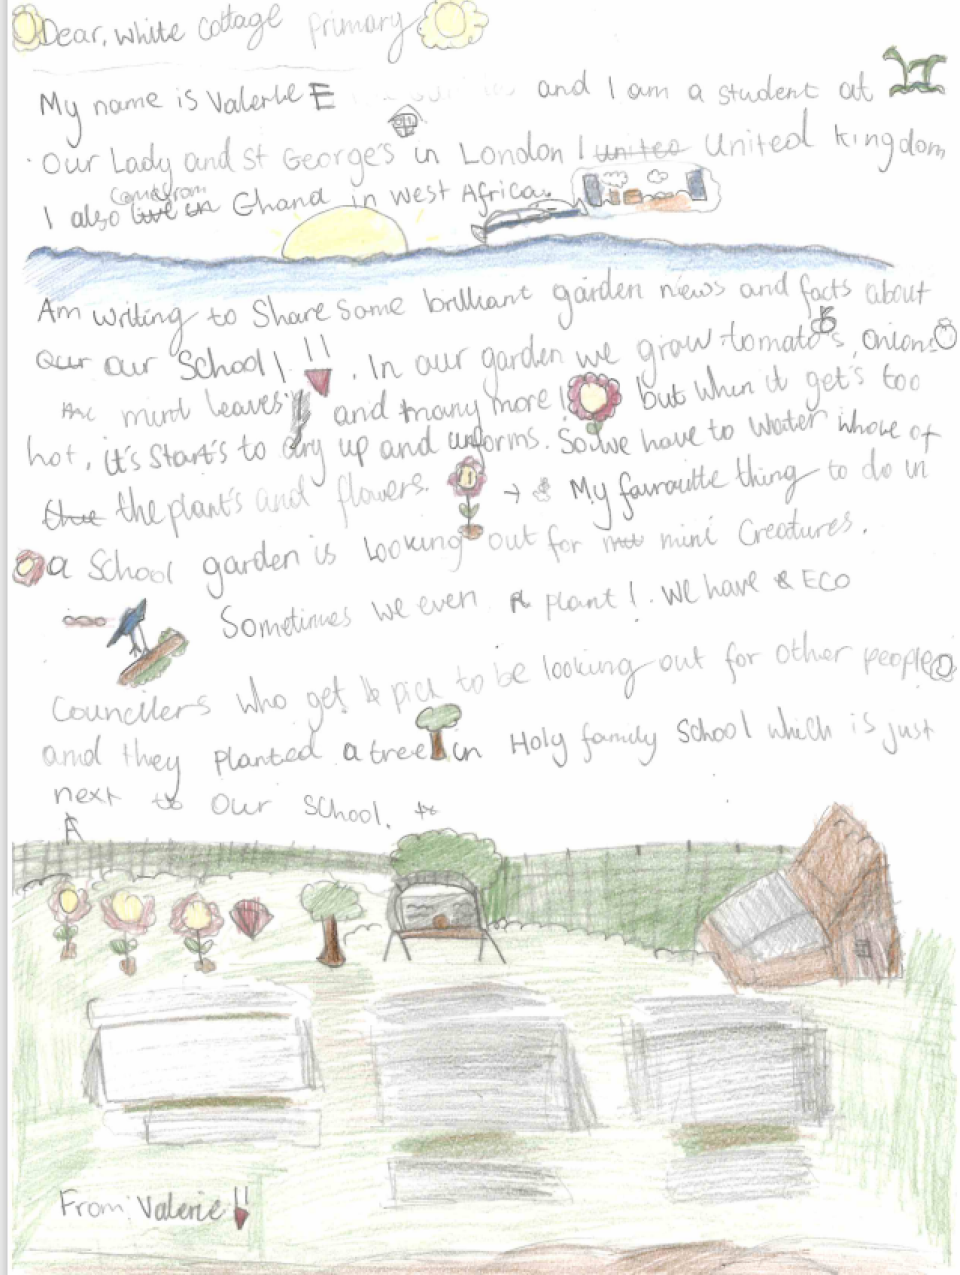 Dear, white cottage primary
My name is Valerie E and I am a student at
Our Lady and St George's in London ! united United kingdom
I also live in come from Ghana in west Africa.
Am writing to Share some brilliant garden news and facts about
our our School! !! . In our garden we grow tomato's, onions
mint leaves and many more! but when it get's too
hot, it's start's to dry up and unforms. So we have to water whole of
the plant's and flowers. → My favourite thing to do in
a School garden is looking out for mini Creatures.
Sometimes we even plant!. We have ECO
Councllers who get pick to be looking out for other people
and they planted a tree in Holy family School which is just
next to our school.
From: Valerie !!